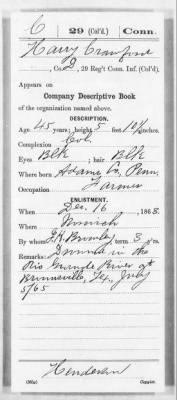 C | 29 (Col'd.) | Conn.
Harry Crawford
, Co. G, 29 Reg't Conn. Inf. (Col'd.)
Appears on
Company Descriptive Book
of the organization named above.
DESCRIPTION.
Age 45 years; height 5 feet 10½ inches.
Complexion Col.
Eyes Blk ; hair Blk
Where born Adams Co, Penn.
Occupation Farmer
ENLISTMENT.
When Dec. 16 , 1863.
Where Norwich
By whom J. R. Bromley; term 3 y'rs.
Remarks: Drowned in the
Rio Grande River at
Brownsville, Tex, July
5/65
Henderson
Copyist.